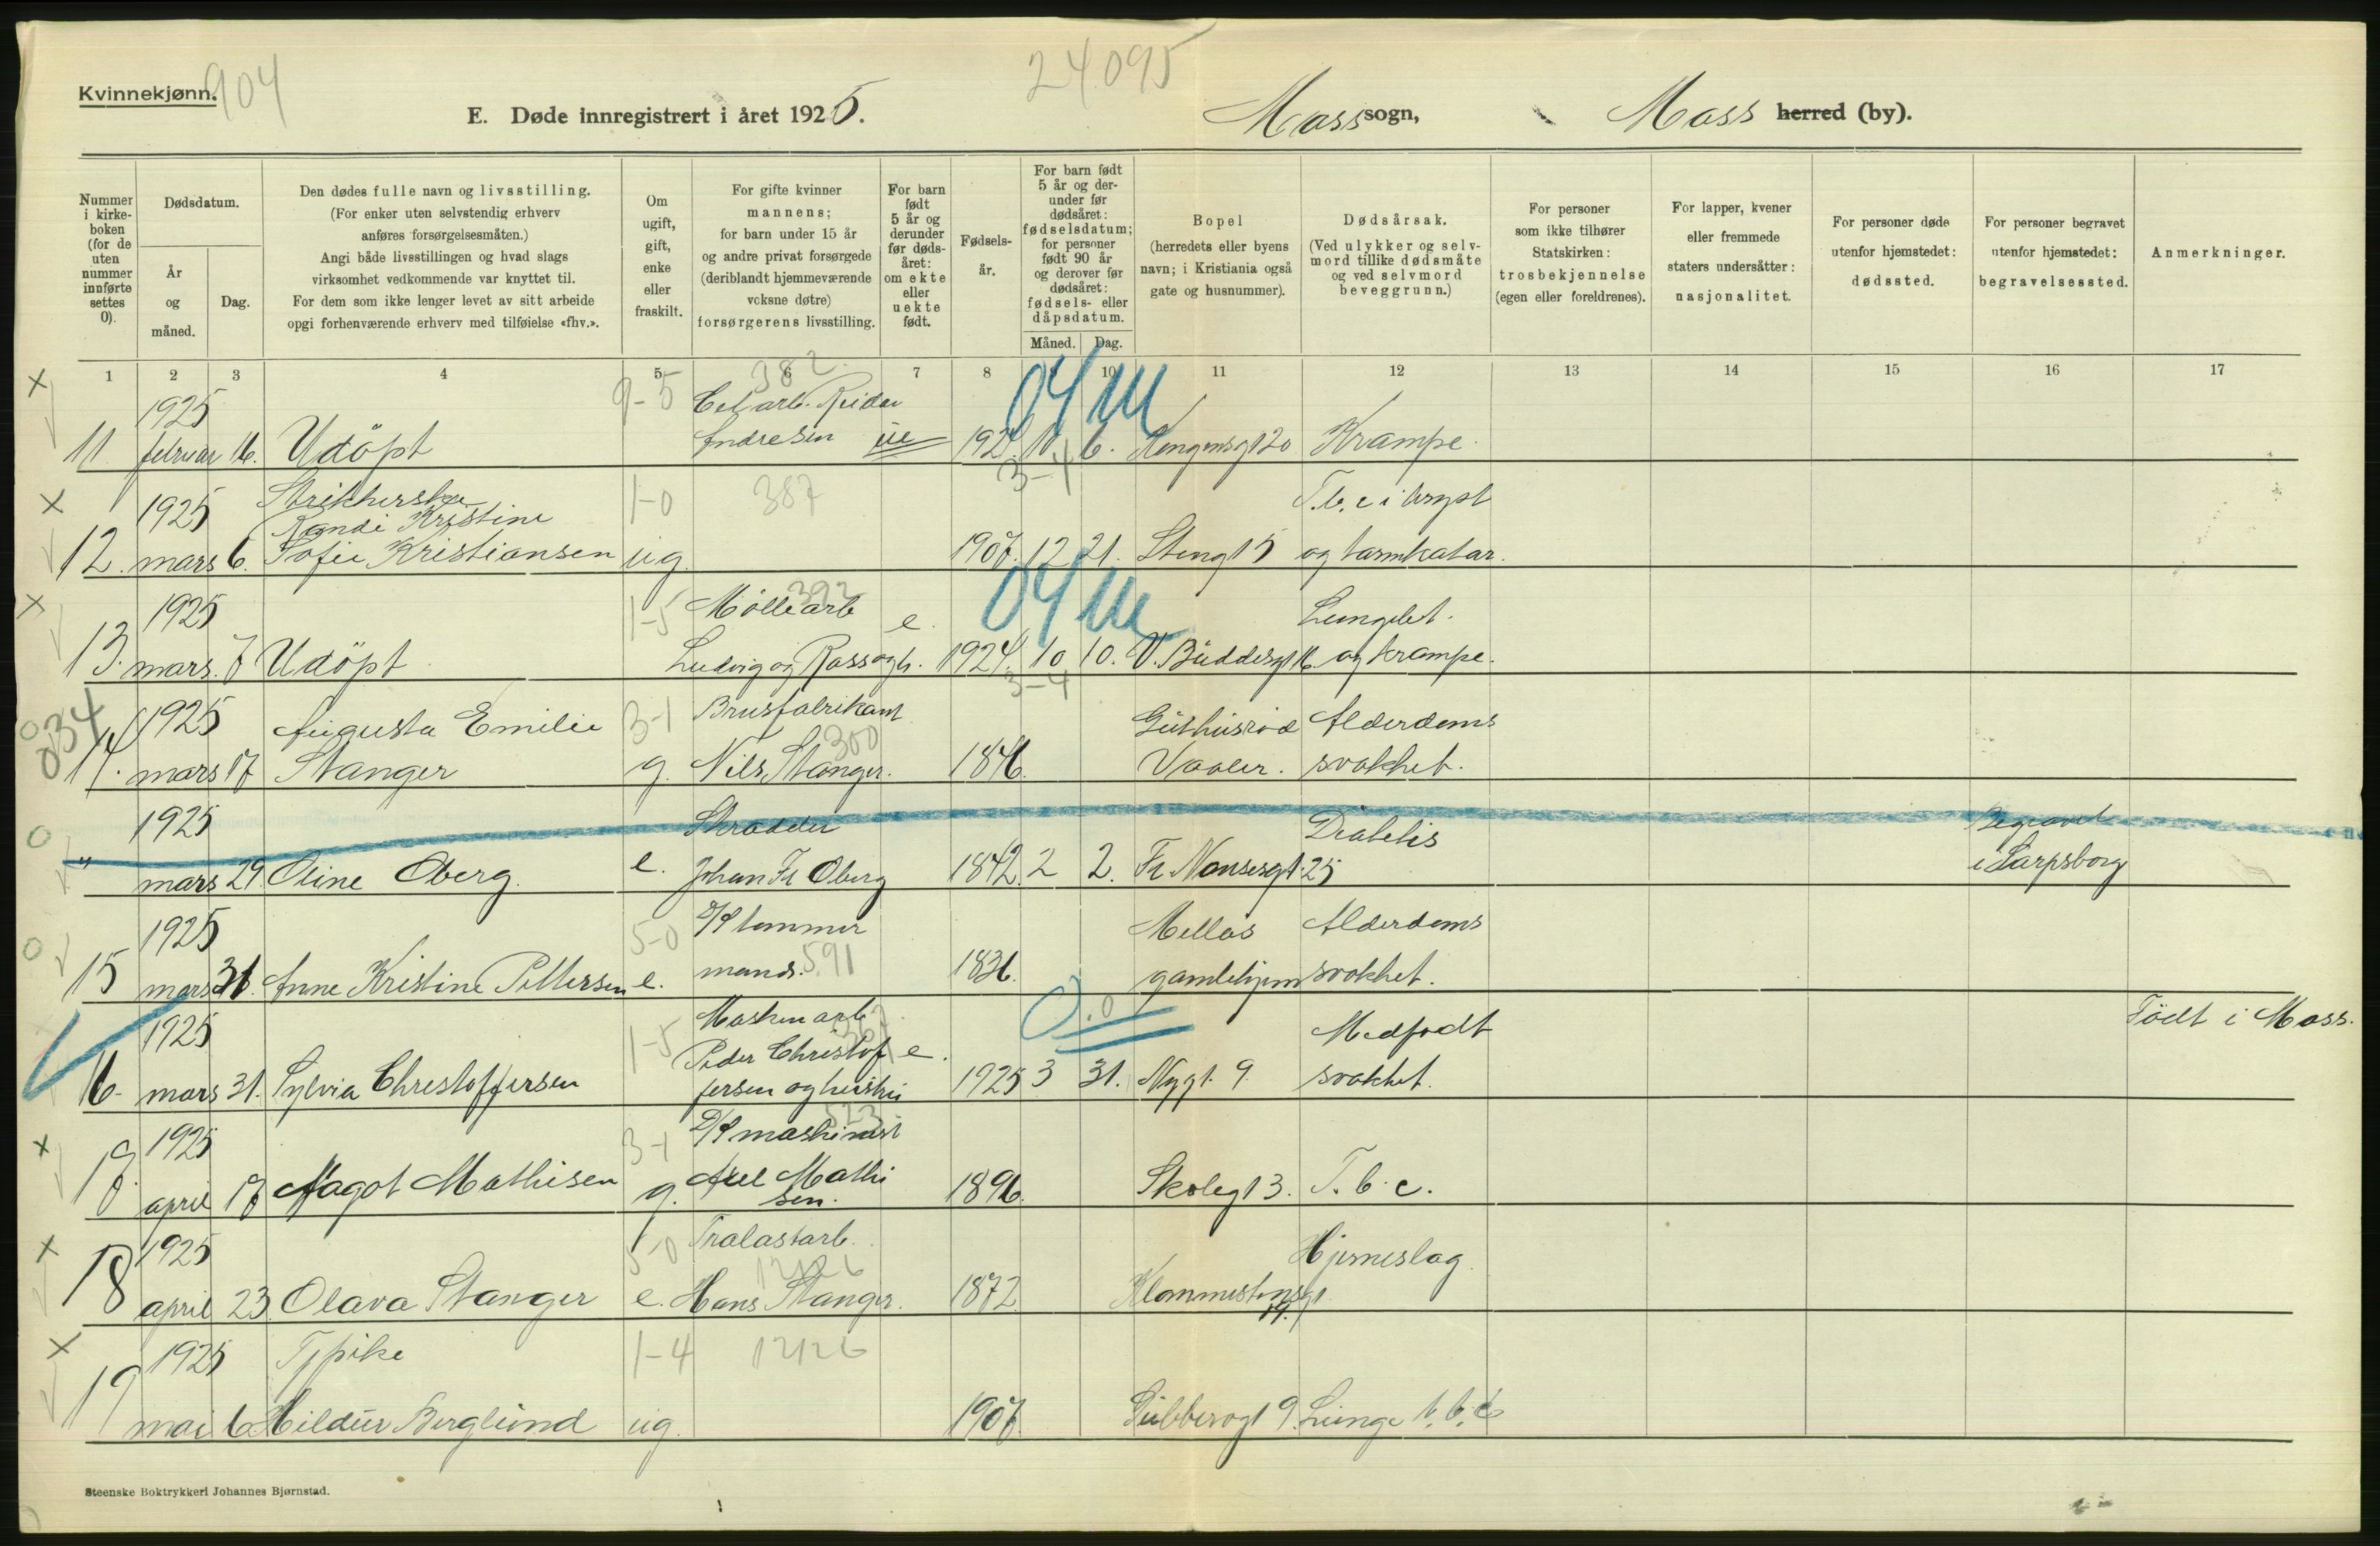 Kvinnekjønn.
904
24095
E. Døde innregistrert i året 1925.
Moss sogn,
Moss herred (by).
Nummer i kirke-boken (for de uten nummer innførte settes 0).
Dødsdatum.
År og måned.
Dag.
Den dødes fulle navn og livsstilling.
(For enker uten selvstendig erhverv
anføres forsørgelsesmåten.)
Angi både livsstillingen og hvad slags
virksomhet vedkommende var knyttet til.
For dem som ikke lenger levet av sitt arbeide
opgi forhenværende erhverv med tilføielse «fhv.».
Om ugift, gift, enke eller fraskilt.
For gifte kvinner
mannens;
for barn under 15 år
og andre privat forsørgede
(deriblandt hjemmeværende
voksne døtre)
forsørgerens livsstilling.
For barn født 5 år og derunder før døds-året: om ekte eller uekte født.
Fødsels-år.
For barn født 5 år og der-under før dødsåret: fødselsdatum; for personer født 90 år og derover før dødsåret: fødsels- eller dåpsdatum.
Måned. Dag.
Bopel
(herredets eller byens
navn; i Kristiania også
gate og husnummer).
Dødsårsak.
(Ved ulykker og selv-
mord tillike dødsmåte
og ved selvmord
beveggrunn.)
For personer
som ikke tilhører
Statskirken:
trosbekjennelse
(egen eller foreldrenes).
For lapper, kvener
eller fremmede
staters undersåtter:
nasjonalitet.
For personer døde
utenfor hjemstedet:
dødssted.
For personer begravet
utenfor hjemstedet:
begravelsessted.
Anmerkninger.
1 2 3 4 5 6 7 8 10 11 12 13 14 15 16 17
1925 9-5 382
Andresen ue
11 februar 16. Udöpt 192 6. Krampe.
3-4
1925 1-0 387 T.b.c i bryst
Randi Kristine
12. mars 6. Sofie Kristiansen ug. 1907. 12 21. Stengt 5 og tarmkatar.
1925 1-5 Möllearb 392 e.
Lungebet.
13. mars. 7 Udöpt Ludvig og 1924. 10 10. og krampe.
3-4
034
1925 Augusta Emilie 3-1 Brusfabrikant Alderdoms
300
14. mars 17 Stanger g. Nils Stanger. 1846. Vaaler. svakhet.
1925 Skradder Diabetis Begravet
" mars 29. Oline Oberg. e. Johan Fr Oberg 1842. 2 2. Fr. Nansesgt. 25 i Sarpsborg
1925 5-0 Mellös Alderdoms
15 mars 31. Anne Kristine Pettersen e. 591 1836. gamlehjem svakhet.
1925 1-5 Maskinarb Medfødt Födt i Moss.
Peder Christof e.
16. mars 31. Sylvia Christoffersen fersen og hustru 1925 3 31. Nygt. 9. svakhet.
1925 3-1 maskinist
17. april 17 Aagot Mathisen g. Axel Mathi 1896. Skolegt 3. T. b. c.
sen.
1925 5-0 Tralastarb. Hjerneslag.
12126
18 april 23. Olava Stanger e. Hans Stanger. 1872
19.
1925 Tjpike 1-4 12126
19 mai 6 Hildur Berglund ug. 1907. 9. Lunge t.b.c
Steenske Boktrykkeri Johannes Bjørnstad.